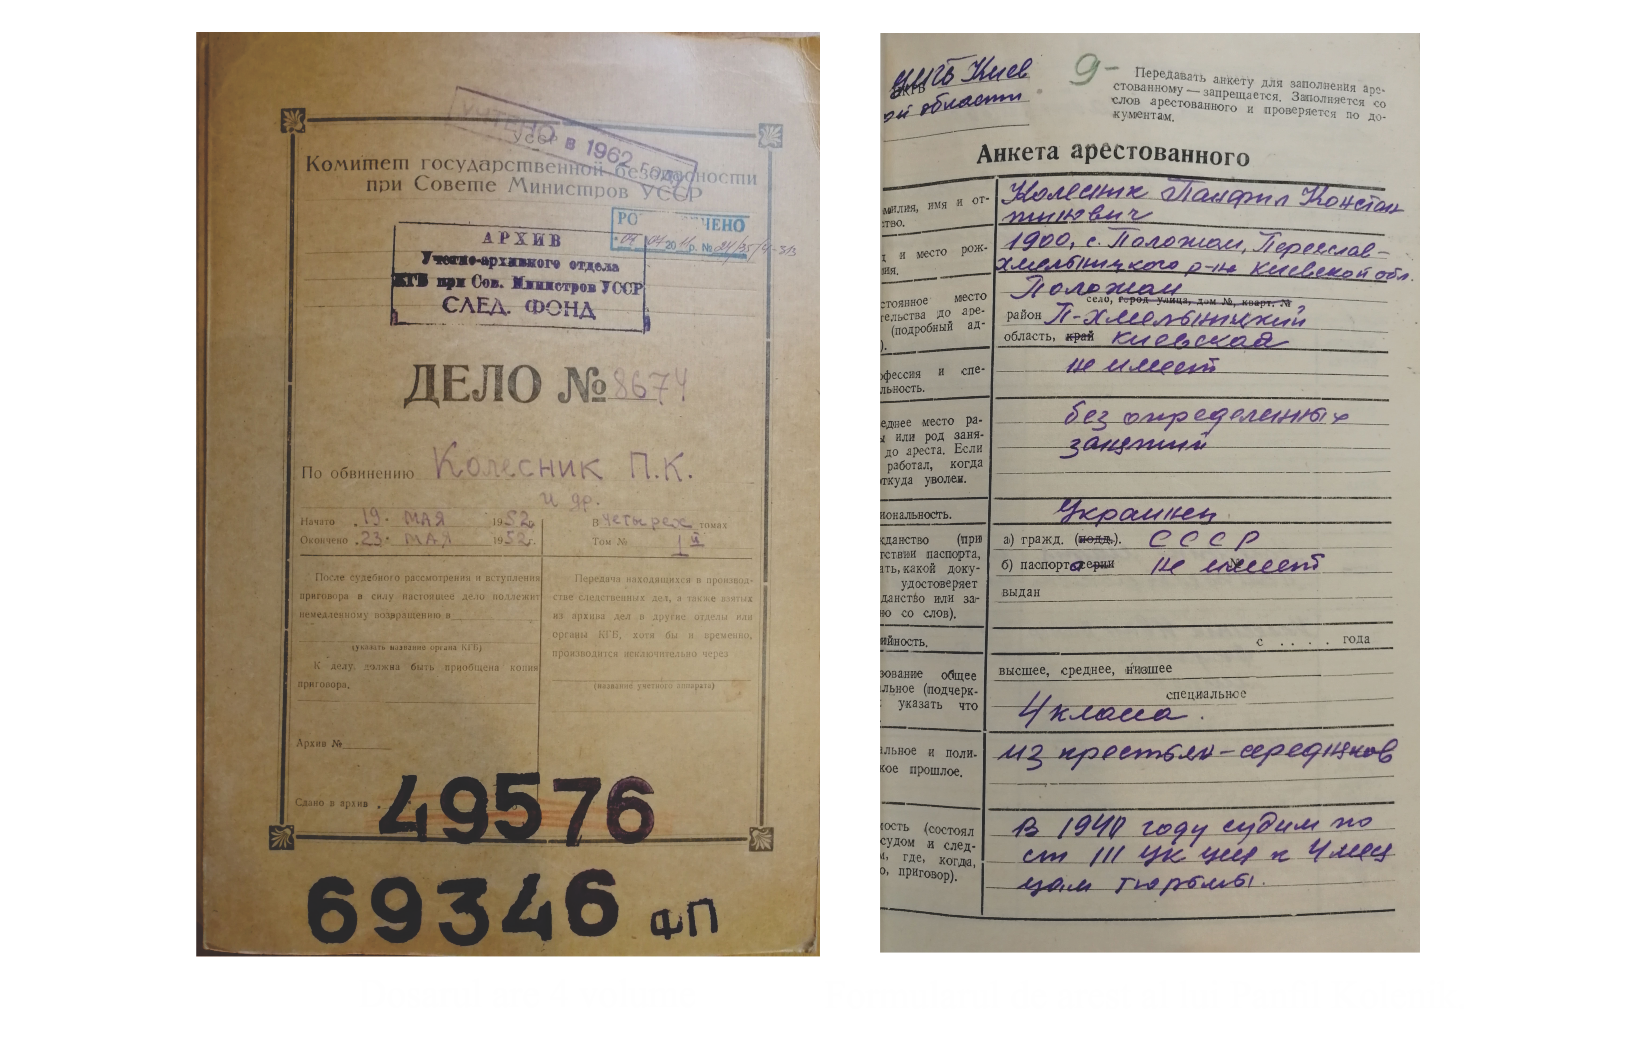 УЧТЕНО в 1962 году
УССР
Комитет государственной безопасности
при Совете Министров УССР
АРХИВ
Учетно-архивного отдела
КГБ при Сов. Министров УССР
СЛЕД. ФОНД
ДЕЛО № 8674
По обвинению Колесник П.К.
и др.
Начато 19. МАЯ 1952г.
Окончено 23. МАЯ 1952г.
В четырех томах
Том № 1й
После судебного рассмотрения и вступления
приговора в силу настоящее дело подлежит
немедленному возвращению в
(указать название органа КГБ)
К делу должна быть приобщена копия
приговора.
Передача находящихся в производ-
стве следственных дел, а также взятых
из архива дел в другие отделы или
органы КГБ, хотя бы и временно,
производится исключительно через
(название учетного аппарата)
Архив №
Сдано в архив
49576
69346 ФП
УМГБ Киев
ой области
9-
Передавать анкету для заполнения аре-
стованному — запрещается. Заполняется со
слов арестованного и проверяется по до-
кументам.
Анкета арестованного
милия, имя и от-
ство.
Колесник Панфил Констан
тинович
д и место рож-
ния.
1900, с. Положаи, Переяслав-
Хмельницкого р-на Киевской обл.
стоянное место
тельства до аре-
(подробный ад-
).
Положаи
село, город улица, дом №, кварт. №
район П-Хмельницкий
область, край Киевская
офессия и спе-
льность.
не имеет
еднее место ра-
ы или род заня-
до ареста. Если
работал, когда
ткуда уволен.
без определенных
занятий
иональность.
Украинец
жданство (при
тствии паспорта,
ать, какой доку-
удостоверяет
данство или за-
но со слов).
а) гражд. (подд.). СССР
б) паспорта серии № не имеет
выдан
ийность.
с . . . . года
зование общее
льное (подчерк-
указать что
высшее, среднее, низшее
специальное
4 класса.
альное и поли-
кое прошлое.
из крестьян-середняков
мость (состоял
судом и след-
м, где, когда,
о, приговор).
В 1940 году судим по
ст 111 УК УССР к 4 меся
цам тюрьмы.